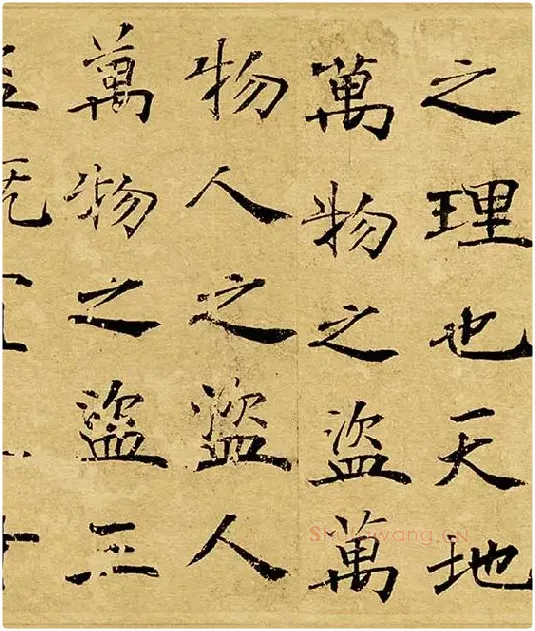 之理也天地
萬物之盜萬
物人之盜人
萬物之盜三